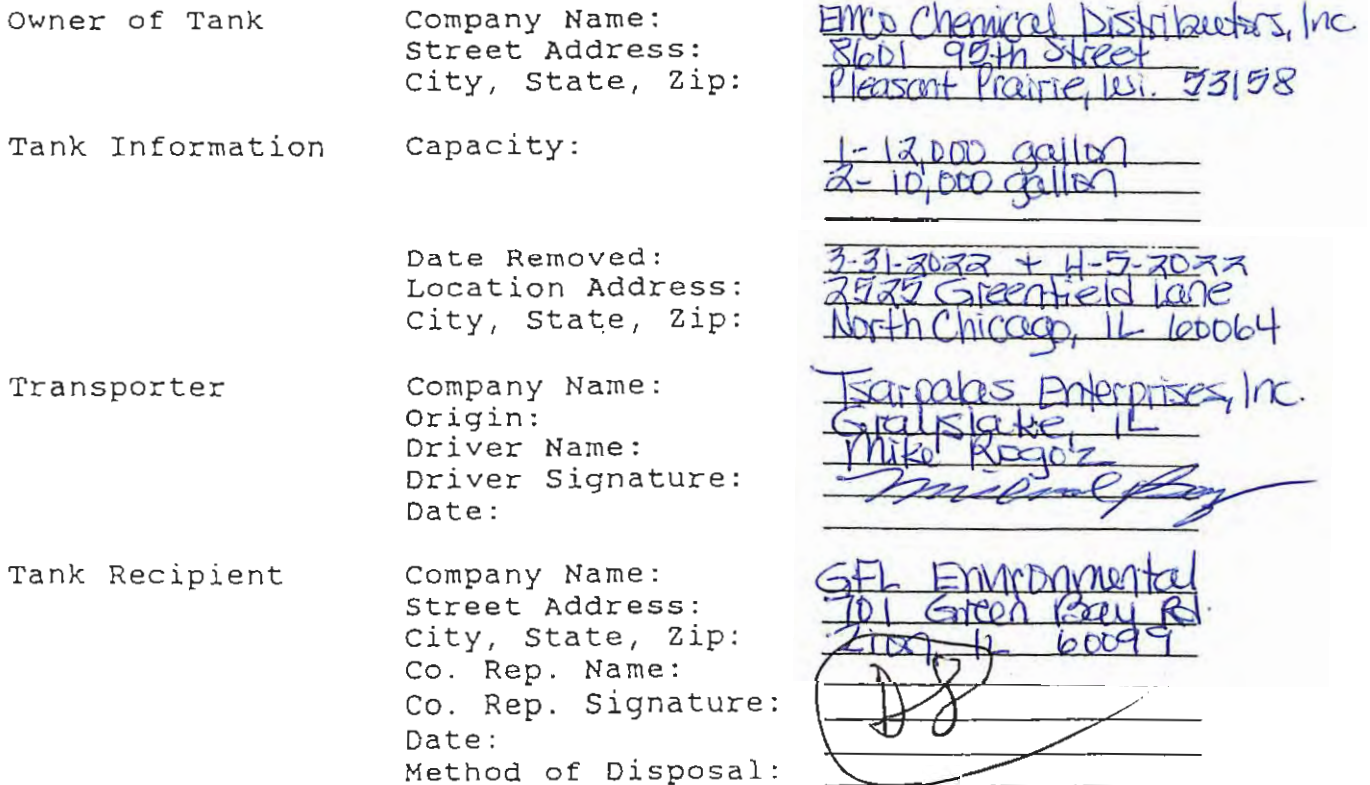 Owner of Tank Company Name: Emco Chemical Distributors, Inc.
Street Address: 8601 95th Street
City, State, Zip: Pleasant Prairie, Wi. 53158
Tank Information Capacity: 1- 12,000 gallon
2- 10,000 gallon
Date Removed: 3-31-2022 + 4-5-2022
Location Address: 2525 Greenfield Lane
City, State, Zip: North Chicago, IL 60064
Transporter Company Name: Tsarpalas Enterprises, Inc.
Origin: Grayslake, IL
Driver Name: Mike Rogoz
Driver Signature:
Date:
Tank Recipient Company Name: GFL Environmental
Street Address: 701 Green Bay Rd.
City, State, Zip: Zion, IL 60099
Co. Rep. Name:
Co. Rep. Signature:
Date:
Method of Disposal: